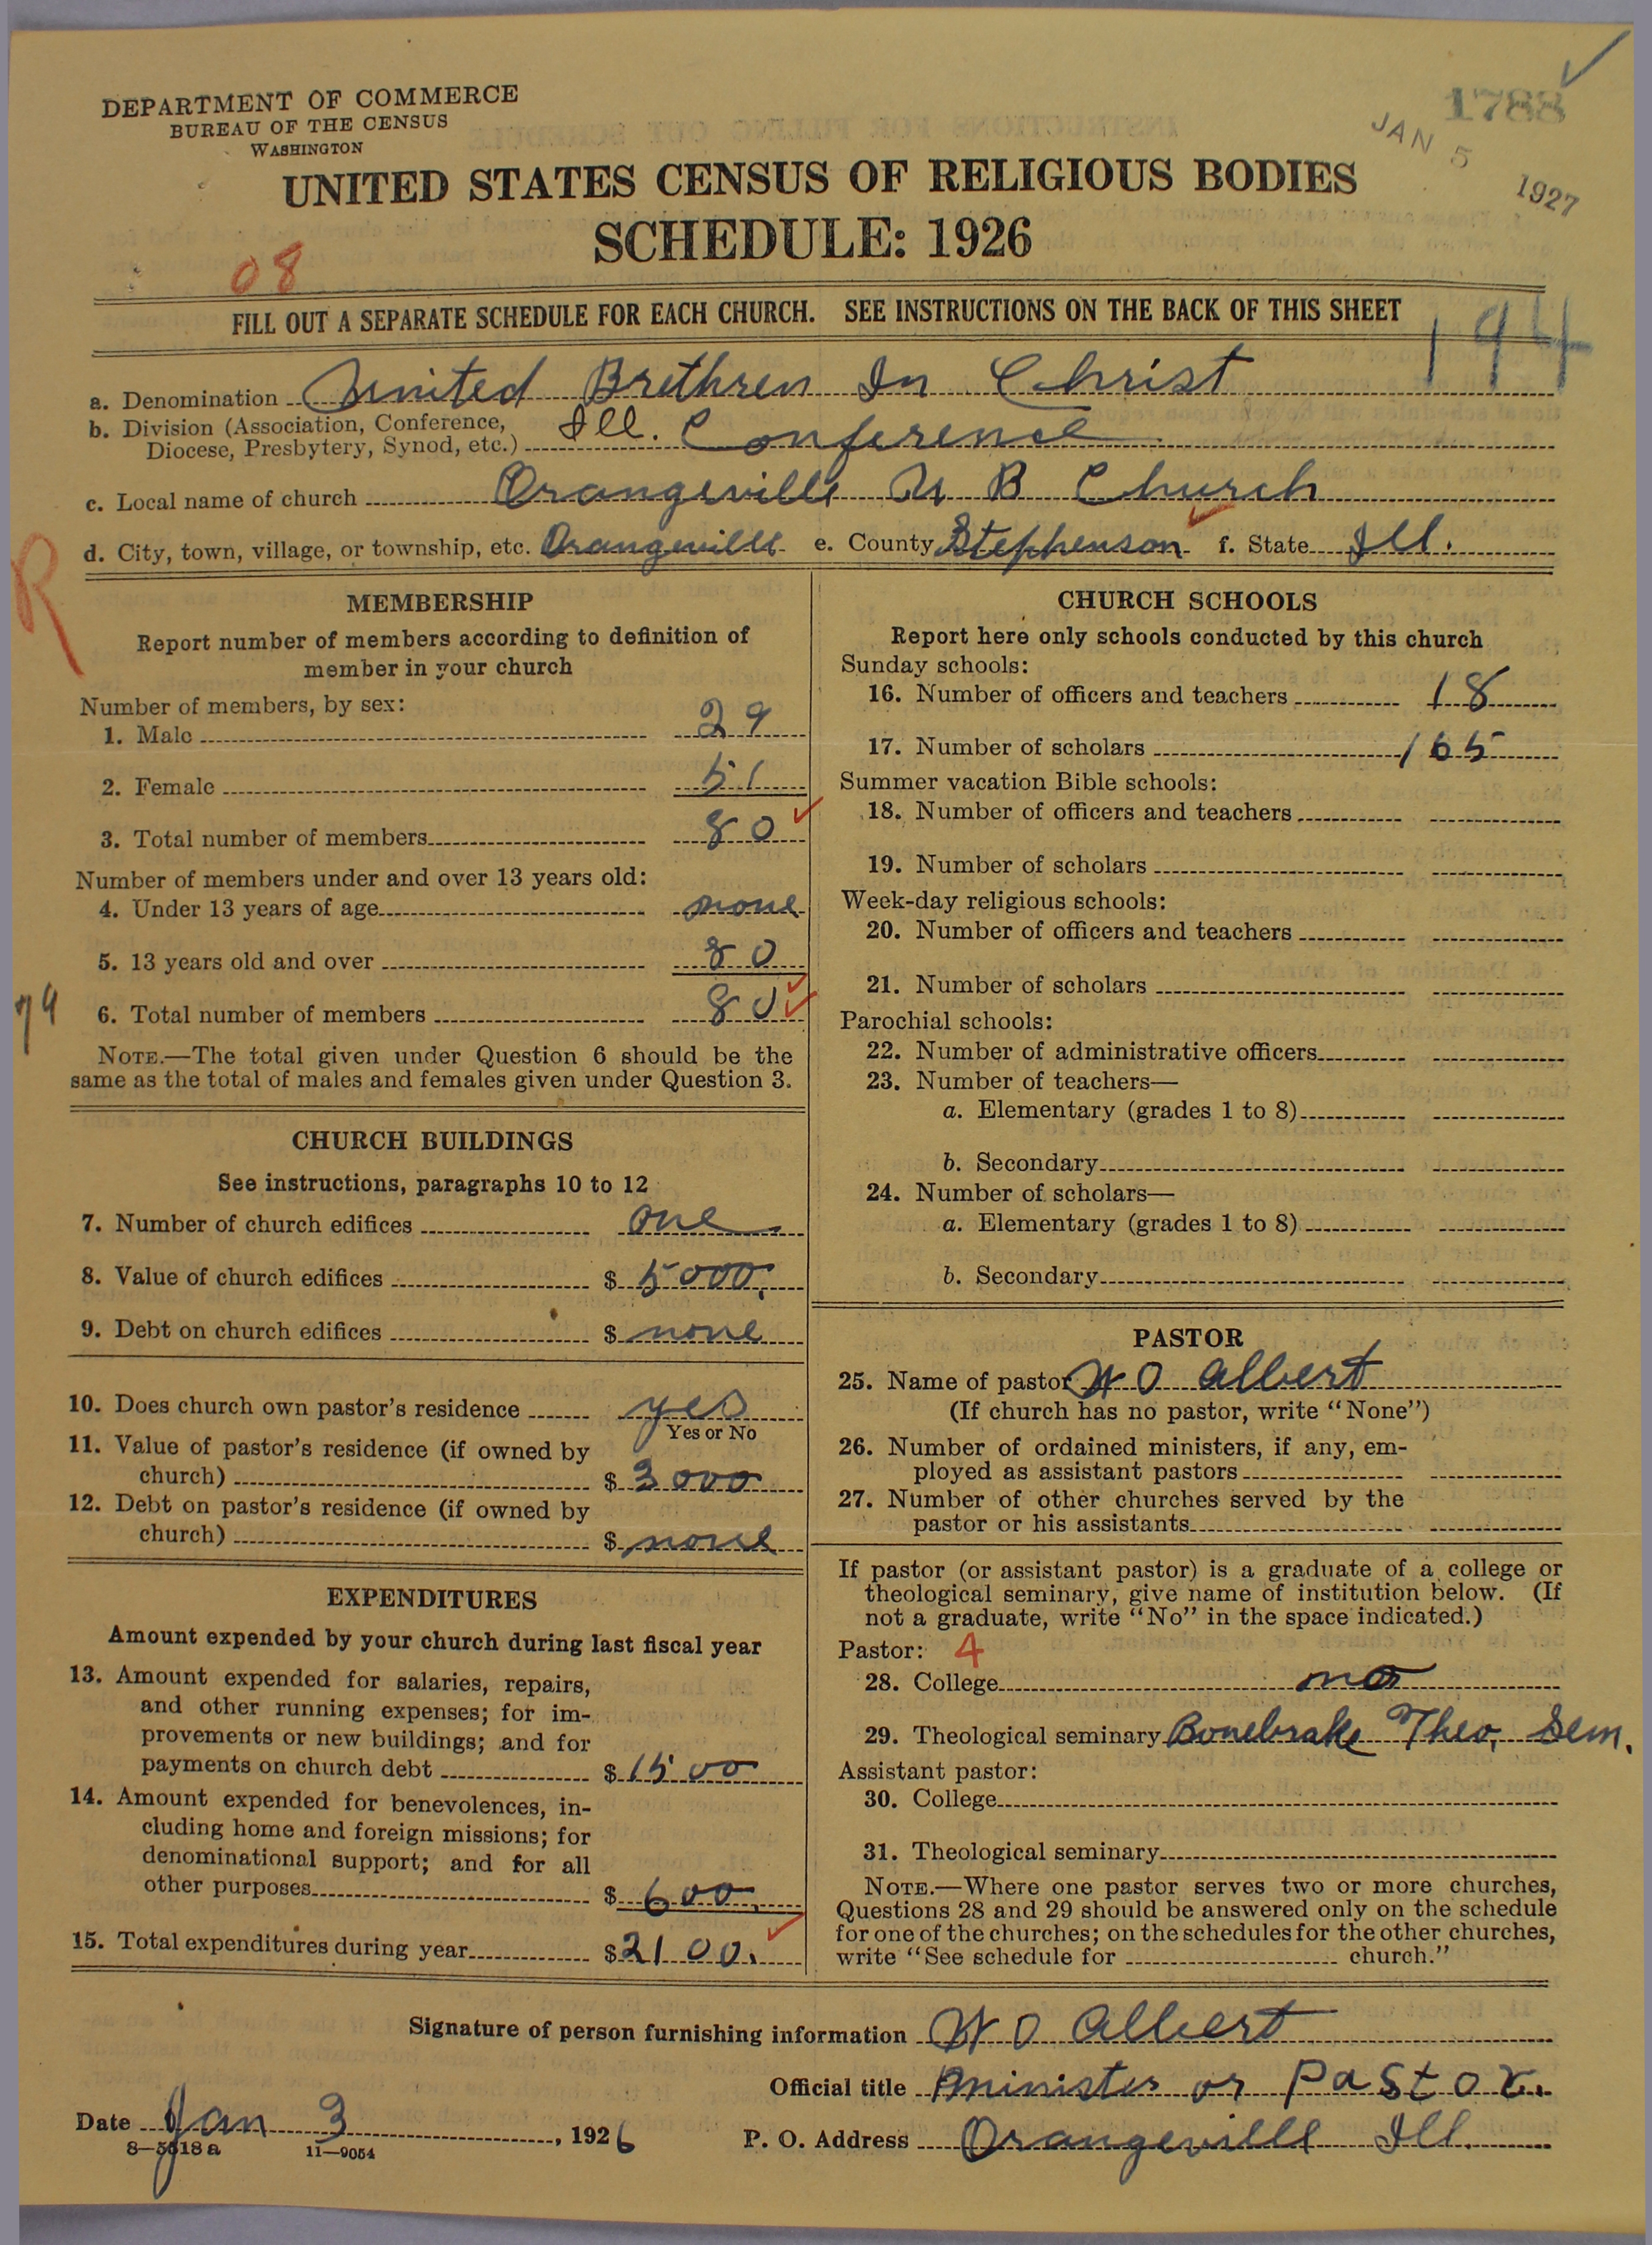 1788
JAN 5 1927
DEPARTMENT OF COMMERCE
BUREAU OF THE CENSUS
WASHINGTON
UNITED STATES CENSUS OF RELIGIOUS BODIES
SCHEDULE: 1926
08
FILL OUT A SEPARATE SCHEDULE FOR EACH CHURCH. SEE INSTRUCTIONS ON THE BACK OF THIS SHEET
194
a. Denomination United Brethren In Christ
b. Division (Association, Conference,
Diocese, Presbytery, Synod, etc.) Ill. Conference
c. Local name of church Orangeville U B Church
d. City, town, village, or township, etc. Orangeville e. County Stephenson f. State Ill.
R
MEMBERSHIP
Report number of members according to definition of
member in your church
Number of members, by sex:
1. Male 29
2. Female 51
3. Total number of members 80
Number of members under and over 13 years old:
4. Under 13 years of age none
5. 13 years old and over 80
79
6. Total number of members 80
NOTE.—The total given under Question 6 should be the
same as the total of males and females given under Question 3.
CHURCH BUILDINGS
See instructions, paragraphs 10 to 12
7. Number of church edifices one
8. Value of church edifices $ 5000.
9. Debt on church edifices $ none
10. Does church own pastor's residence yes
Yes or No
11. Value of pastor's residence (if owned by
church) $ 3000
12. Debt on pastor's residence (if owned by
church) $ none
EXPENDITURES
Amount expended by your church during last fiscal year
13. Amount expended for salaries, repairs,
and other running expenses; for im-
provements or new buildings; and for
payments on church debt $ 1500
14. Amount expended for benevolences, in-
cluding home and foreign missions; for
denominational support; and for all
other purposes $ 600
15. Total expenditures during year $ 2100.
CHURCH SCHOOLS
Report here only schools conducted by this church
Sunday schools:
16. Number of officers and teachers 18
17. Number of scholars 165
Summer vacation Bible schools:
18. Number of officers and teachers
19. Number of scholars
Week-day religious schools:
20. Number of officers and teachers
21. Number of scholars
Parochial schools:
22. Number of administrative officers
23. Number of teachers—
a. Elementary (grades 1 to 8)
b. Secondary
24. Number of scholars—
a. Elementary (grades 1 to 8)
b. Secondary
PASTOR
25. Name of pastor W O Albert
(If church has no pastor, write "None")
26. Number of ordained ministers, if any, em-
ployed as assistant pastors
27. Number of other churches served by the
pastor or his assistants
If pastor (or assistant pastor) is a graduate of a college or
theological seminary, give name of institution below. (If
not a graduate, write "No" in the space indicated.)
Pastor: 4
28. College no
29. Theological seminary Bonebrake Theo. Sem.
Assistant pastor:
30. College
31. Theological seminary
NOTE.—Where one pastor serves two or more churches,
Questions 28 and 29 should be answered only on the schedule
for one of the churches; on the schedules for the other churches,
write "See schedule for church."
Signature of person furnishing information W O Albert
Official title Minister or Pastor.
Date Jan 3, 1926 P. O. Address Orangeville Ill.
8—5518 a 11—9054